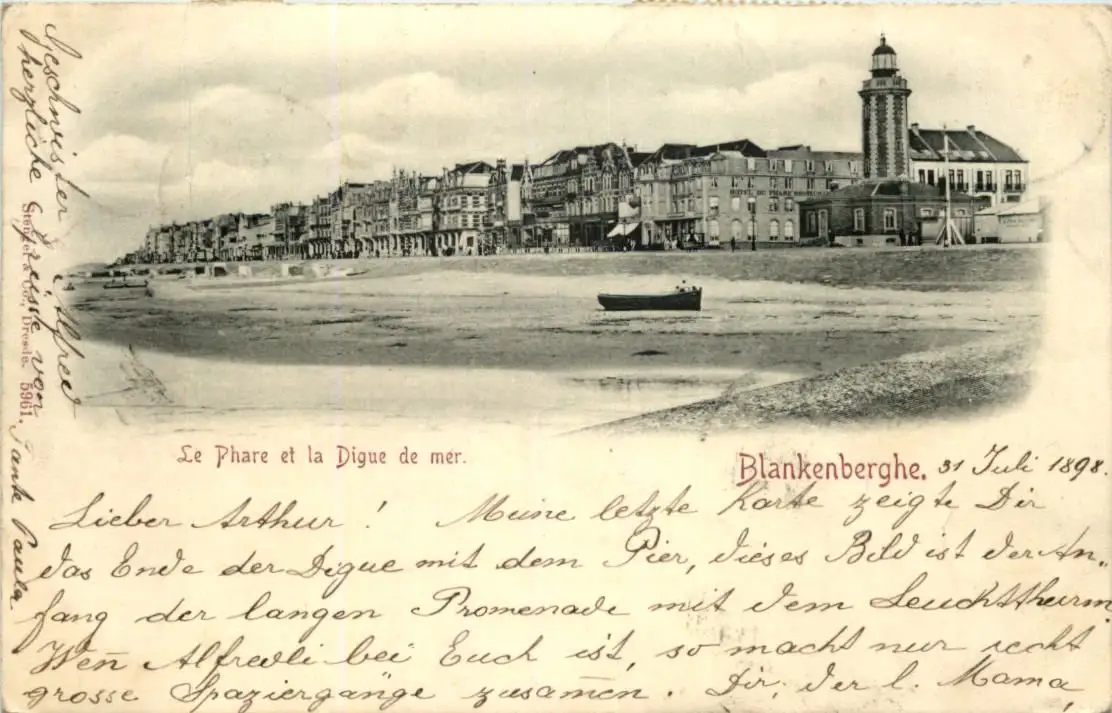 Le Phare et la Digue de mer.
Blankenberghe. 31 Juli 1898.
Lieber Arthur! Meine letzte Karte zeigte Dir
das Ende der Digue mit dem Pier, dieses Bild ist der An„
fang der langen Promenade mit dem Leuchtthurm.
Wen̄ Alfredli bei Euch ist, so macht nur recht
grosse Spaziergänge zusam̄en. Dir, der l. Mama,
Geschwister u Alfred
herzliche Grüsse von
Tante Paula
Stengel & Co., Dresde. 5961.